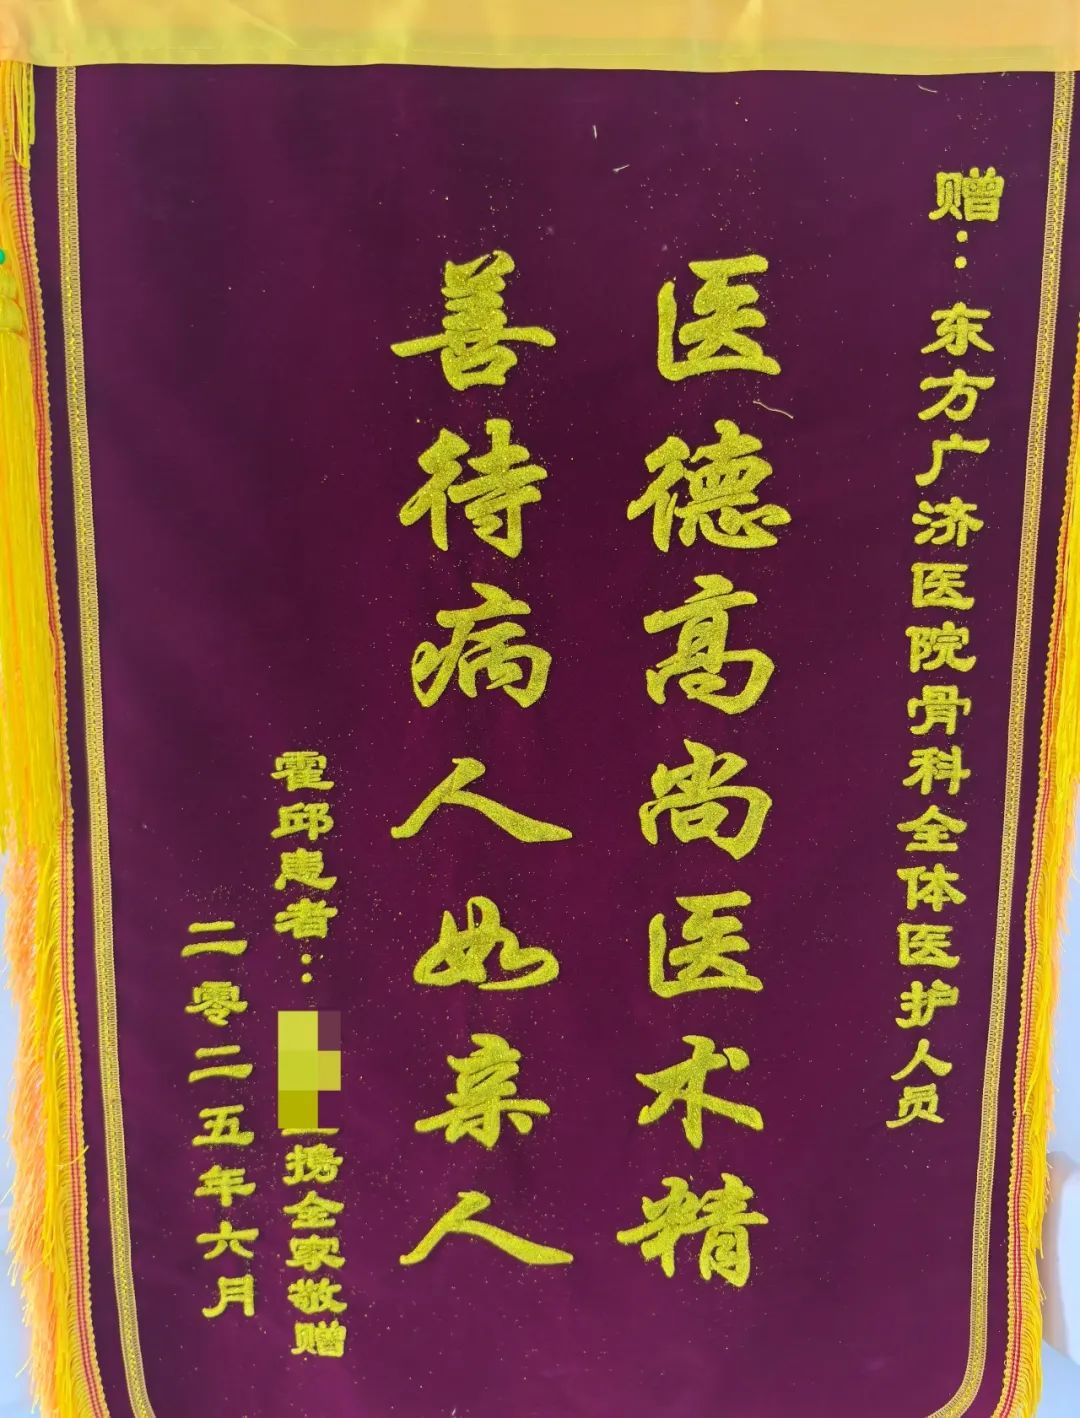 赠：东方广济医院骨科全体医护人员
医德高尚医术精
善待病人如亲人
霍邱患者：携全家敬赠
二零二五年六月